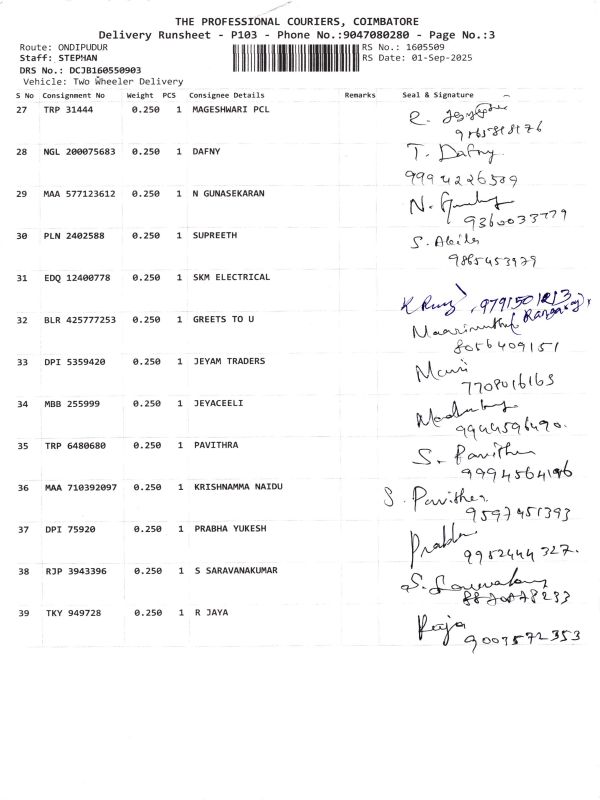 THE PROFESSIONAL COURIERS, COIMBATORE
Delivery Runsheet - P103 - Phone No.:9047080280 - Page No.:3
Route: ONDIPUDUR
RS No.: 1605509
Staff: STEPHAN
RS Date: 01-Sep-2025
DRS No.: DCJB160550903
Vehicle: Two Wheeler Delivery
S No Consignment No Weight PCS Consignee Details Remarks Seal & Signature
27 TRP 31444 0.250 1 MAGESHWARI PCL
28 NGL 200075683 0.250 1 DAFNY T. Dafny
9994226509
29 MAA 577123612 0.250 1 N GUNASEKARAN N.
9360033779
30 PLN 2402588 0.250 1 SUPREETH S.
9865453979
31 EDQ 12400778 0.250 1 SKM ELECTRICAL
32 BLR 425777253 0.250 1 GREETS TO U
8056409151
33 DPI 5359420 0.250 1 JEYAM TRADERS Mani
7708016163
34 MBB 255999 0.250 1 JEYACEELI
9944596490.
35 TRP 6480680 0.250 1 PAVITHRA S. Pavithra
36 MAA 710392097 0.250 1 KRISHNAMMA NAIDU S. Pavithra
9597451393
37 DPI 75920 0.250 1 PRABHA YUKESH Prabha
9952444327.
38 RJP 3943396 0.250 1 S SARAVANAKUMAR
39 TKY 949728 0.250 1 R JAYA Raja
9003572353